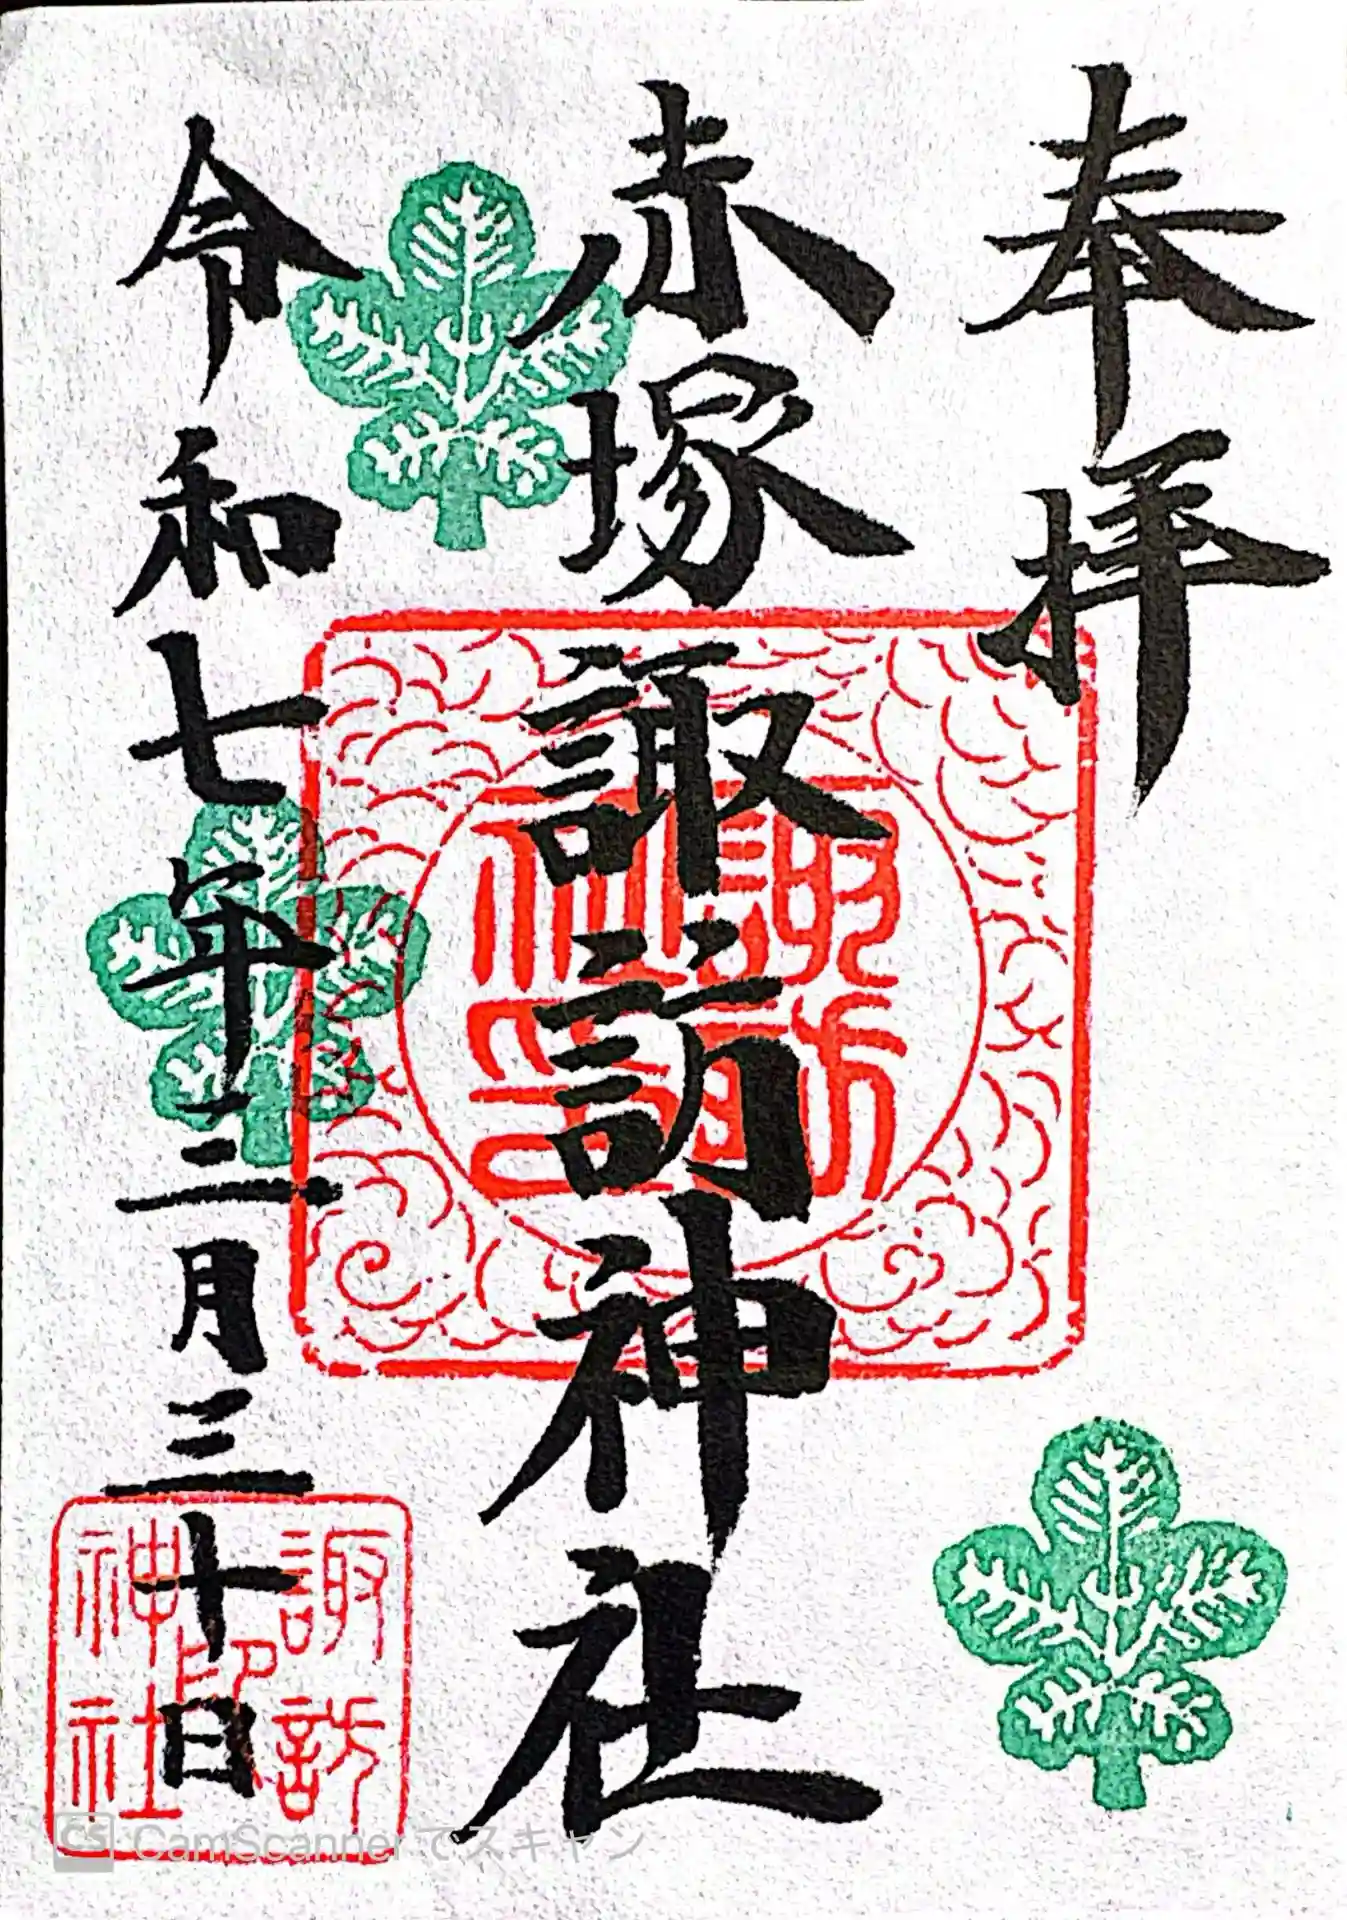 奉拝
赤塚諏訪神社
令和七年三月三十日
諏訪
神社
印
CS CamScanner でスキャン